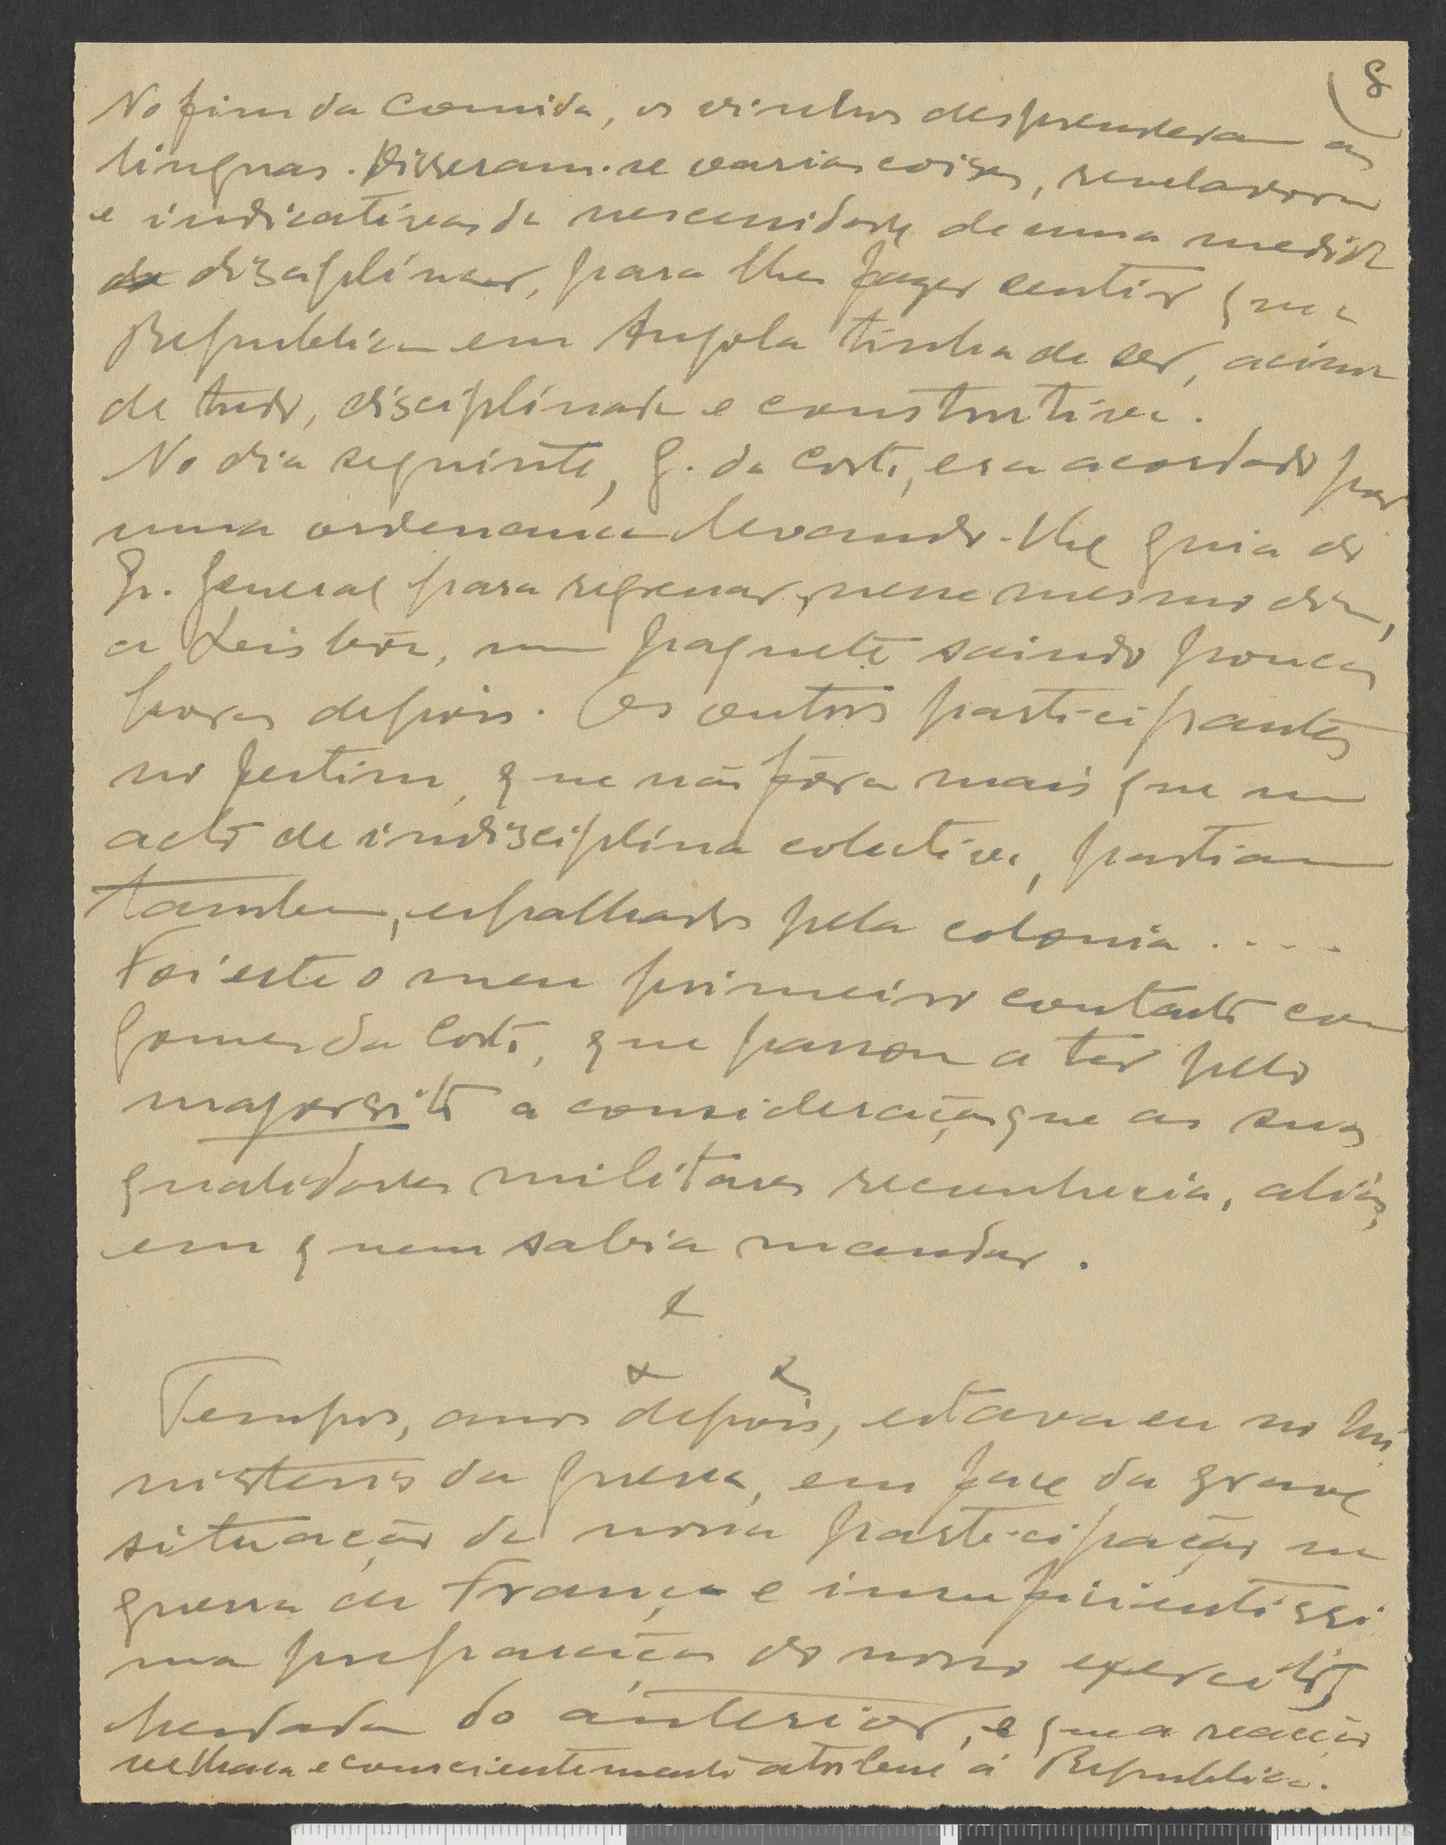 8
No fim da comida, os vinhos desprenderam as
linguas. Disseram-se varias coisas, reveladoras
e indicativas da necessidade de uma medida
disciplinar, para lhes fazer sentir que a
Republica em Angola tinha de ser, acima
de tudo, disciplinada e construtiva.
No dia seguinte, G. da Costa, era acordado por
uma ordenança levando-lhe guia do
Qr. General para regressar, nesse mesmo dia,
a Leisbôa, num paquete saindo poucas
horas depois. Os outros participantes
no festim, que não fôra mais que um
acto de indisciplina colectiva, partiam
tambem, espalhados pela colonia....
Foi este o meu primeiro contacto com
Gomes da Costa, que passou a ter pelo
majorsito a consideração que as suas
qualidades militares reconhecia, aliás,
em quem sabia mandar.
x
x x
Tempos, anos depois, estava eu no Mi
nisterio da Guerra, em face da grave
situação da nossa participação na
guerra da França e insuficientissi
ma preparação do nosso exercito,
herdada do anterior, e que a reacção
velhaca e conscientemente atribue á Republica.